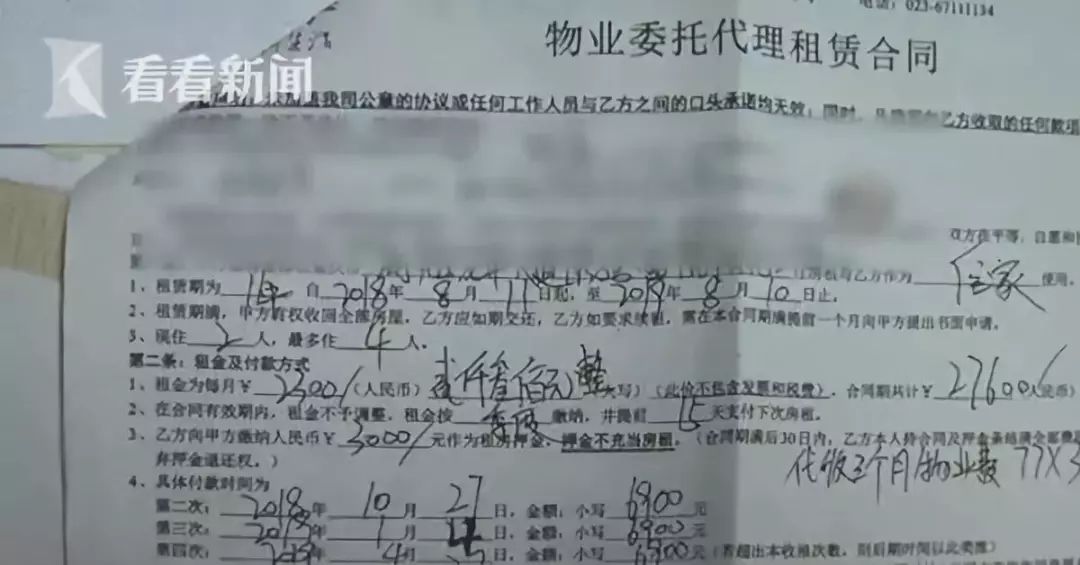 电话：023-67111134
看看新闻
物业委托代理租赁合同
我司公章的协议或任何工作人员与乙方之间的口头承诺均无效；同时，乙方收取的任何款项
双方在平等、自愿和
租与乙方作为 住家 使用。
1、租赁期为 1年 自 2018 年 8 月 11 日起，至 2019 年 8 月 10 日止。
2、租赁期满，甲方有权收回全部房屋，乙方应如期交还，乙方如要求续租，需在本合同期满提前一个月向甲方提出书面申请。
3、现住 2 人，最多住 4 人。
第二条：租金及付款方式
1、租金为每月￥ 2300/ （人民币） 贰仟叁佰元整 大写）（此价不包含发票和税费），合同期共计￥ 27600/ 人民币）
2、在合同有效期内，租金不予调整，租金按 季度 缴纳，并提前 15 天支付下次房租。
3、乙方向甲方缴纳人民币￥ 3000/ 元作为租房押金，押金不充当房租。（合同期满后30日内，乙方本人持合同及押金条结清全部费
弃押金退还权。）
代收三个月物业费 77×3
4、具体付款时间为
第二次： 2018 年 10 月 27 日，金额：小写 6900 元
第三次： 年 1 月 日，金额：小写 6900 元
第四次： 2019 年 4 月 日，金额：小写 6900 元（若超出本收租次数，则后期时间以此类推）